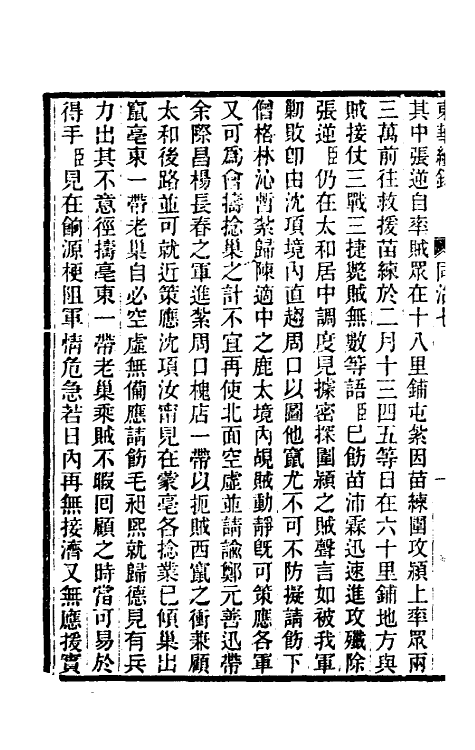 東華續錄 同治七 一
其中張逆自率賊眾在十八里鋪屯紮因苗練圍攻潁上率眾兩
三萬前往救援苗練於二月十三四五等日在六十里鋪地方與
賊接仗三戰三捷斃賊無數等語臣巳飭苗沛霖迅速進攻殲除
張逆臣仍在太和居中調度見據密探圍潁之賊聲言如被我軍
勦敗卽由沈項境內直趨周口以圖他竄尤不可不防擬請飭下
僧格林沁暫紮歸陳適中之鹿太境內覘賊動靜旣可策應各軍
又可爲會擣捻巢之計不宜再使北面空虛並請諭鄭元善迅帶
余際昌楊長春之軍進紮周口槐店一帶以扼賊西竄之衝兼顧
太和後路並可就近策應沈項汝甯見在蒙亳各捻業巳傾巢出
竄亳東一帶老巢自必空虛無備應請飭毛昶熙就歸德見有兵
力出其不意徑擣亳東一帶老巢乘賊不暇回顧之時當可易於
得手臣見在餉源梗阻軍情危急若日內再無接濟又無應援實